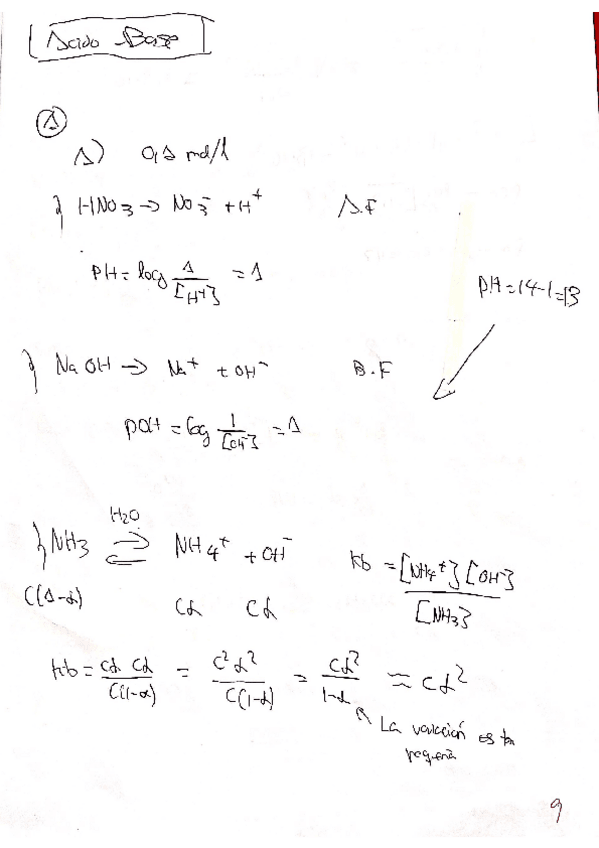 Acido - Base
①
1) 0,1 mol/l
} HNO3 → NO3⁻ + H⁺ A.F
PH = log 1/[H⁺] = 1
pH = 14-1 = 13
} NaOH → Na⁺ + OH⁻ B.F
pOH = log 1/[OH⁻] = 1
H2O
} NH3 ⇌ NH4⁺ + OH⁻ Kb = [NH4⁺][OH⁻]/[NH3]
C(1-α) Cα Cα
Kb = Cα Cα/C(1-α) = C²α²/C(1-α) = Cα²/1-α ≈ Cα²
La variación es tan
pequeña
9